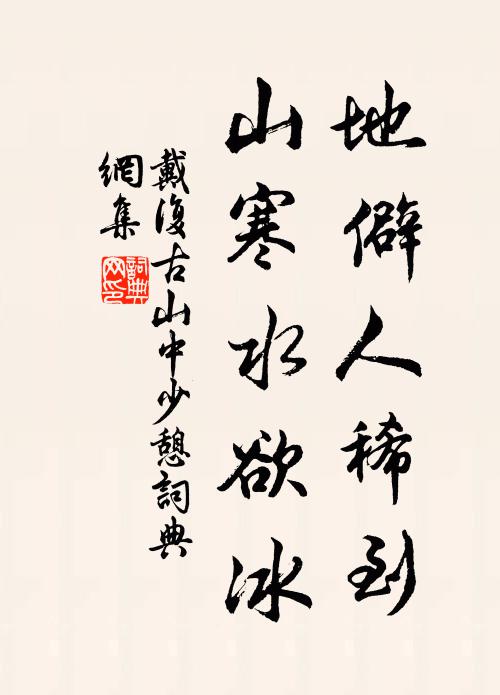 地僻人稀到
山寒水欲冰
戴復古山中少憩詞典
網集
詞典網印